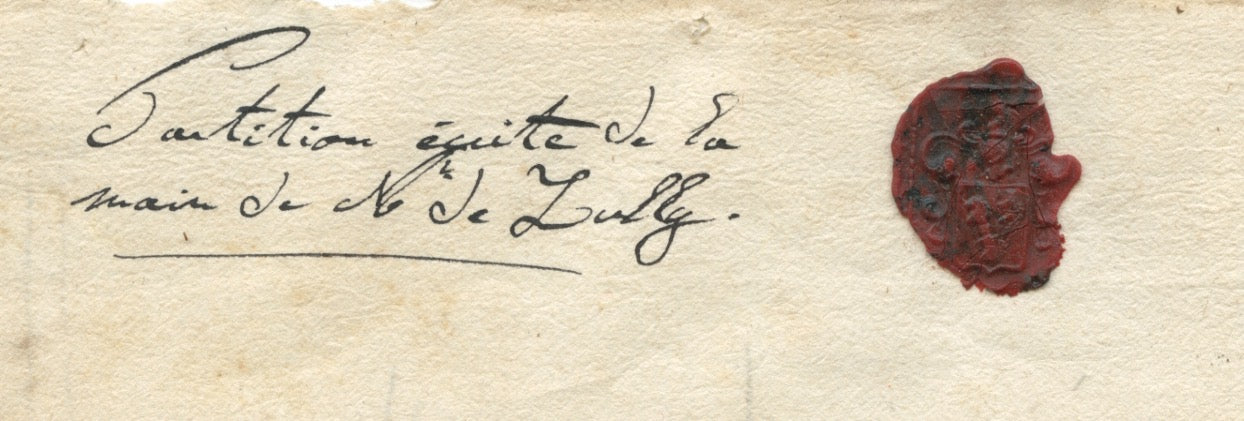 Partition écrite de la
main de Mr de Lully.